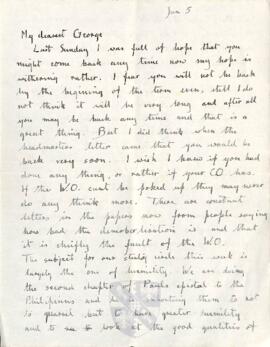 Jan 5
My dearest George
Last Sunday I was full of hope that you
might come back any time now my hope is
withering rather. I fear you will not be back
by the beginning of the term even, still I do
not think it will be very long and after all
you may be back any time and that is a
great thing. But I did think when the
headmasters letter came that you would be
back very soon. I wish I knew if you had
done any thing, or rather if your CO has.
If the W.O. cant be poked up they may never
do any think more. There are constant
letters in the papers now from people saying
how bad the demoberlisation is and that
it is chiefly the fault of the WO.
The subject for our study circle this week is
largely the one of humility. We are doing
the second chapter of Pauls epistal to the
Philipiens and exhorting them to not
to quarrel but to have greater humility
and to look at the good qualities of